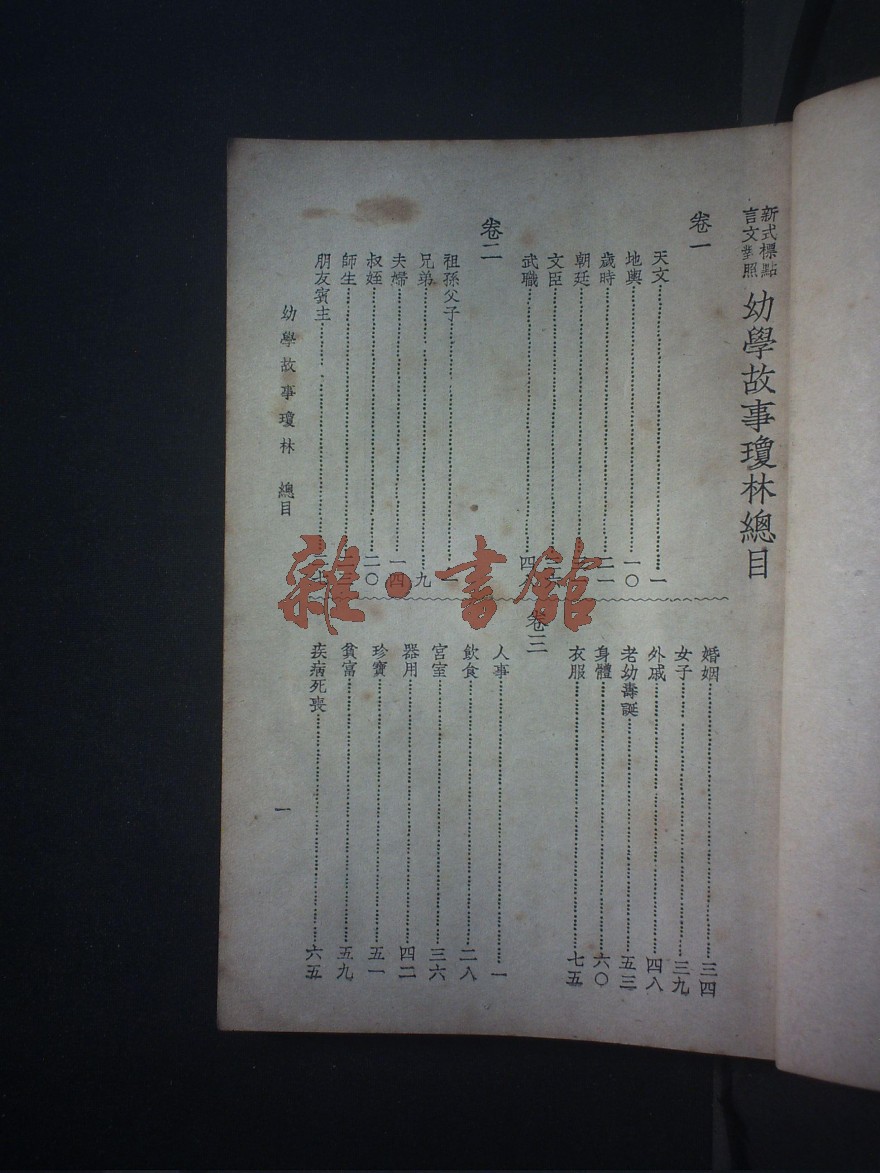 新式標點
言文對照
幼學故事瓊林總目
卷一
天文……一
地輿……一〇
歲時……二一
朝廷……
文臣……
武職……四八
卷二
祖孫父子……一
兄弟……九
夫婦……一四
叔姪……二〇
師生……
朋友賓主……
婚姻……三四
女子……三九
外戚……四八
老幼壽誕……五三
身體……六〇
衣服……七五
卷三
人事……一
飲食……二八
宮室……三六
器用……四二
珍寶……五一
貧富……五九
疾病死喪……六五
幼學故事瓊林 總目
一
雜·書館